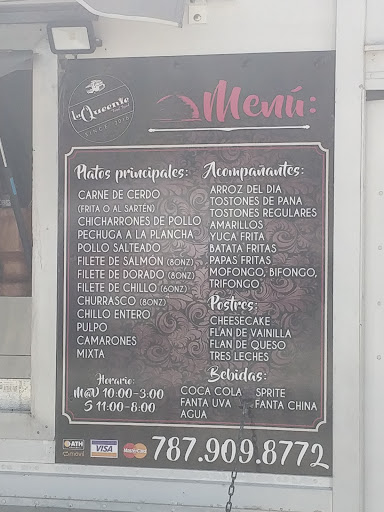 La Queente
Food Truck
SINCE 2018
Menú:
Platos principales:
CARNE DE CERDO
(FRITA O AL SARTÉN)
CHICHARRONES DE POLLO
PECHUGA A LA PLANCHA
POLLO SALTEADO
FILETE DE SALMÓN (8ONZ)
FILETE DE DORADO (8ONZ)
FILETE DE CHILLO (6ONZ)
CHURRASCO (8ONZ)
CHILLO ENTERO
PULPO
CAMARONES
MIXTA
Horario:
M@V 10:00-3:00
S 11:00-8:00
Acompañantes:
ARROZ DEL DIA
TOSTONES DE PANA
TOSTONES REGULARES
AMARILLOS
YUCA FRITA
BATATA FRITAS
PAPAS FRITAS
MOFONGO, BIFONGO,
TRIFONGO
Postres:
CHEESECAKE
FLAN DE VAINILLA
FLAN DE QUESO
TRES LECHES
Bebidas:
COCA COLA SPRITE
FANTA UVA FANTA CHINA
AGUA
ATH
móvil
VISA
MasterCard
787.909.8772